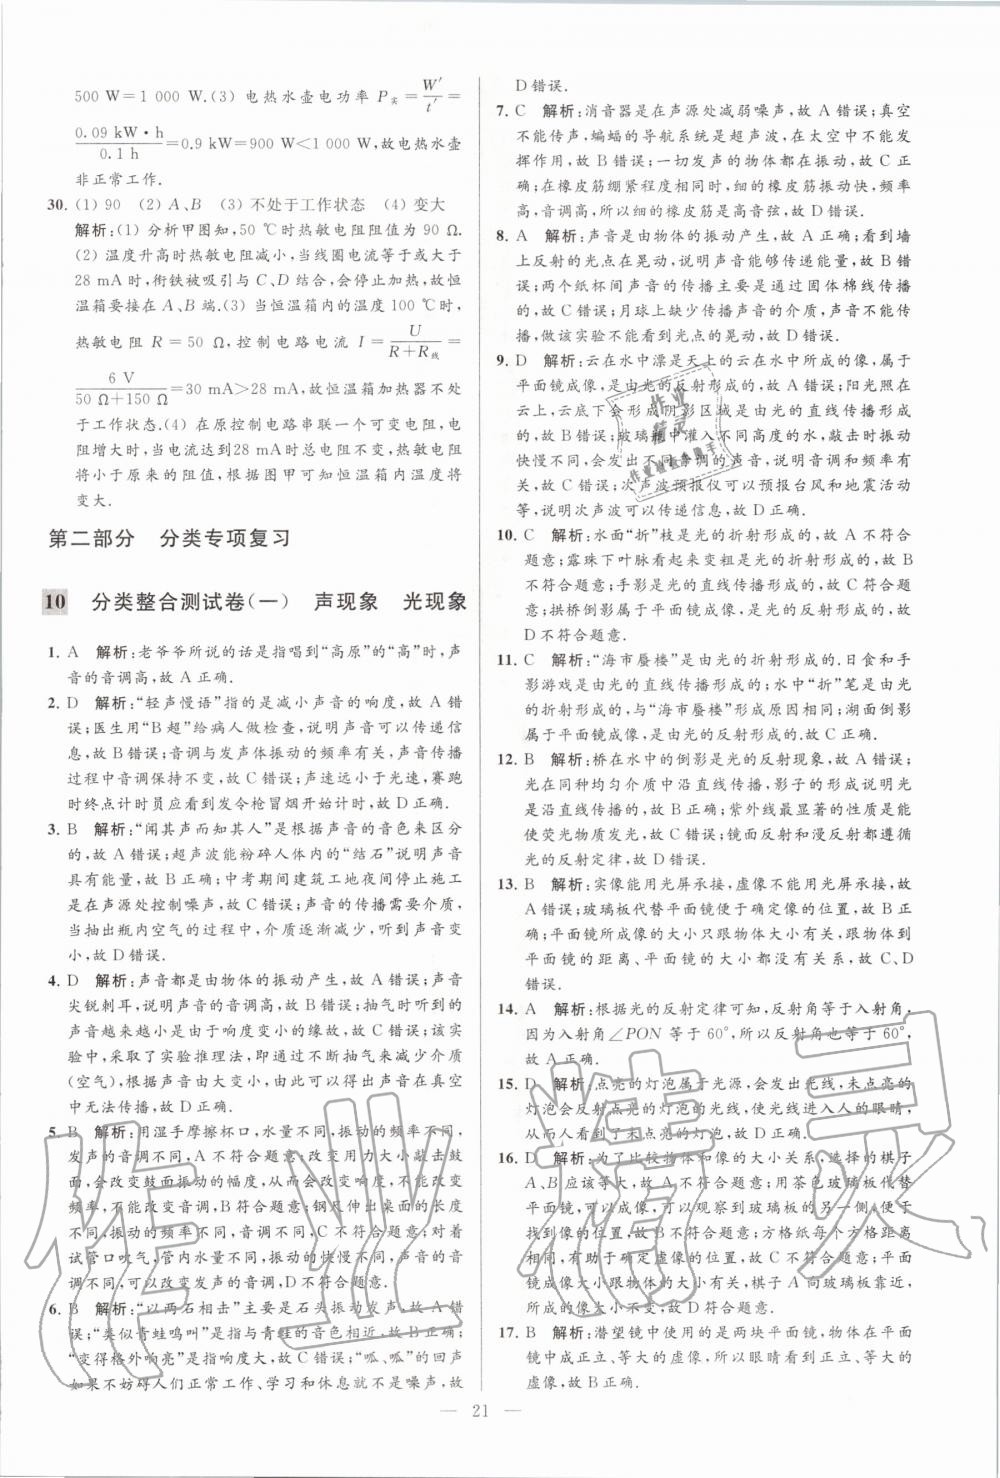 500 W=1 000 W.(3) 电热水壶电功率 P实=W′/t′=
0.09 kW·h/0.1 h=0.9 kW=900 W<1 000 W,故电热水壶
非正常工作.
30. (1) 90 (2) A、B (3) 不处于工作状态 (4) 变大
解析:(1) 分析甲图知,50 ℃时热敏电阻阻值为 90 Ω.
(2) 温度升高时热敏电阻减小,当线圈电流等于或大于
28 mA时,衔铁被吸引与 C、D 结合,会停止加热,故恒
温箱要接在 A、B 端.(3) 当恒温箱内的温度 100 ℃时,
热敏电阻 R=50 Ω,控制电路电流 I=U/(R+R线)=
6 V/(50 Ω+150 Ω)=30 mA>28 mA,故恒温箱加热器不处
于工作状态.(4) 在原控制电路串联一个可变电阻,电
阻增大时,当电流达到28 mA时总电阻不变,热敏电阻
将小于原来的阻值,根据图甲可知恒温箱内温度将
变大.
第二部分 分类专项复习
10 分类整合测试卷(一) 声现象 光现象
1. A 解析:老爷爷所说的话是指唱到“高原”的“高”时,声
音的音调高,故 A 正确.
2. D 解析:“轻声慢语”指的是减小声音的响度,故 A 错
误;医生用“B超”给病人做检查,说明声音可以传递信
息,故 B 错误;音调与发声体振动的频率有关,声音传播
过程中音调保持不变,故 C 错误;声速远小于光速,赛跑
时终点计时员应看到发令枪冒烟开始计时,故 D 正确.
3. B 解析:“闻其声而知其人”是根据声音的音色来区分
的,故 A 错误;超声波能粉碎人体内的“结石”说明声音
具有能量,故 B 正确;中考期间建筑工地夜间停止施工
是在声源处控制噪声,故 C 错误;声音的传播需要介质,
当抽出瓶内空气的过程中,介质逐渐减少,听到声音变
小,故 D 错误.
4. D 解析:声音都是由物体的振动产生,故 A 错误;声音
尖锐刺耳,说明声音的音调高,故 B 错误;抽气时听到的
声音越来越小是由于响度变小的缘故,故 C 错误;该实
验中,采取了实验推理法,即通过不断抽气来减少介质
(空气),根据声音由大变小,由此可以得出声音在真空
中无法传播,故 D 正确.
5. B 解析:用湿手摩擦杯口,水量不同,振动的频率不同,
发声的音调不同,A 不符合题意;改变用力大小敲击鼓
面,会改变鼓面振动的幅度,从而会改变响度,不能改变
频率,不能改变音调,B 符合题意;钢尺伸出桌面的长度
不同,振动的频率不同,音调不同,C 不符合题意;对着
试管口吹气,管内水量不同,振动的快慢不同,声音的音
调不同,可以改变发声的音调,D 不符合题意.
6. B 解析:“以两石相击”主要是石头振动发声,故 A 错
误;“类似青蛙鸣叫”是指与青蛙的音色相近,故 B 正确;
“变得格外响亮”是指响度大,故 C 错误;“呱、呱”的回声
如果不妨碍人们正常工作、学习和休息就不是噪声,故
D 错误.
7. C 解析:消音器是在声源处减弱噪声,故 A 错误;真空
不能传声,蝙蝠的导航系统是超声波,在太空中不能发
挥作用,故 B 错误;一切发声的物体都在振动,故 C 正
确;在橡皮筋绷紧程度相同时,细的橡皮筋振动快,频率
高,音调高,所以细的橡皮筋是高音弦,故 D 错误.
8. A 解析:声音是由物体的振动产生,故 A 正确;看到墙
上反射的光点在晃动,说明声音能够传递能量,故 B 错
误;两个纸杯间声音的传播主要是通过固体棉线传播
的,故 C 错误;月球上缺少传播声音的介质,声音不能传
播,做该实验不能看到光点的晃动,故 D 错误.
9. D 解析:云在水中漂是天上的云在水中所成的像,属于
平面镜成像,是由光的反射形成的,故 A 错误;阳光照在
云上,云底下会形成阴影区域是由光的直线传播形成
的,故 B 错误;玻璃瓶中灌入不同高度的水,敲击时振动
快慢不同,会发出不同音调的声音,故 C 错误;次声波预报仪可以预报台风和地震活动
等,说明次声波可以传递信息,故 D 正确.
10. C 解析:水面“折”枝是光的折射形成的,故 A 不符合
题意;露珠下叶脉看起来变粗是光的折射形成的,故 B
不符合题意;手影是光的直线传播形成的,故 C 符合题
意;拱桥倒影属于平面镜成像,是光的反射形成的,故
D 不符合题意.
11. C 解析:“海市蜃楼”是由光的折射形成的.日食和手
影游戏是由光的直线传播形成的;水中“折”笔是由光
的折射形成的,与“海市蜃楼”形成原因相同;湖面倒影
属于平面镜成像,是由光的反射形成的.故 C 正确.
12. B 解析:桥在水中的倒影是光的反射现象,故 A 错误;
光在同种均匀介质中沿直线传播,影子的形成说明光
是沿直线传播的,故 B 正确;紫外线最显著的性质是能
使荧光物质发光,故 C 错误;镜面反射和漫反射都遵循
光的反射定律,故 D 错误.
13. B 解析:实像能用光屏承接,虚像不能用光屏承接,故
A 错误;玻璃板代替平面镜便于确定像的位置,故 B 正
确;平面镜所成像的大小只跟物体大小有关,跟物体到
平面镜的距离、平面镜的大小都没有关系,故 C、D
错误.
14. A 解析:根据光的反射定律可知,反射角等于入射角,
因为入射角∠PON 等于 60°,所以反射角也等于 60°,
故 A 正确.
15. D 解析:点亮的灯泡属于光源,会发出光线,未点亮的
灯泡会反射点亮的灯泡的光线,使光线进入人的眼睛,
从而人看到了未点亮的灯泡,故 D 正确.
16. D 解析:为了比较物体和像的大小关系,选择的棋子
A、B 应该等大,故 A 不符合题意;用茶色玻璃板代替
平面镜成像,可以观察到玻璃板的另一侧,便于
找到像的位置,故 B 不符合题意;方格纸每个方格距离
相同,有助于确定虚像的位置,故 C 不符合题意;平面
镜成像大小跟物体的大小有关,棋子 A 向玻璃板靠近,
所成的像大小不变,故 D 符合题意.
17. B 解析:潜望镜中使用的是两块平面镜,物体在平面
镜中成正立、等大的虚像,所以眼睛看到的是正立、等大
的虚像,故 B 正确.
— 21 —
作业精灵